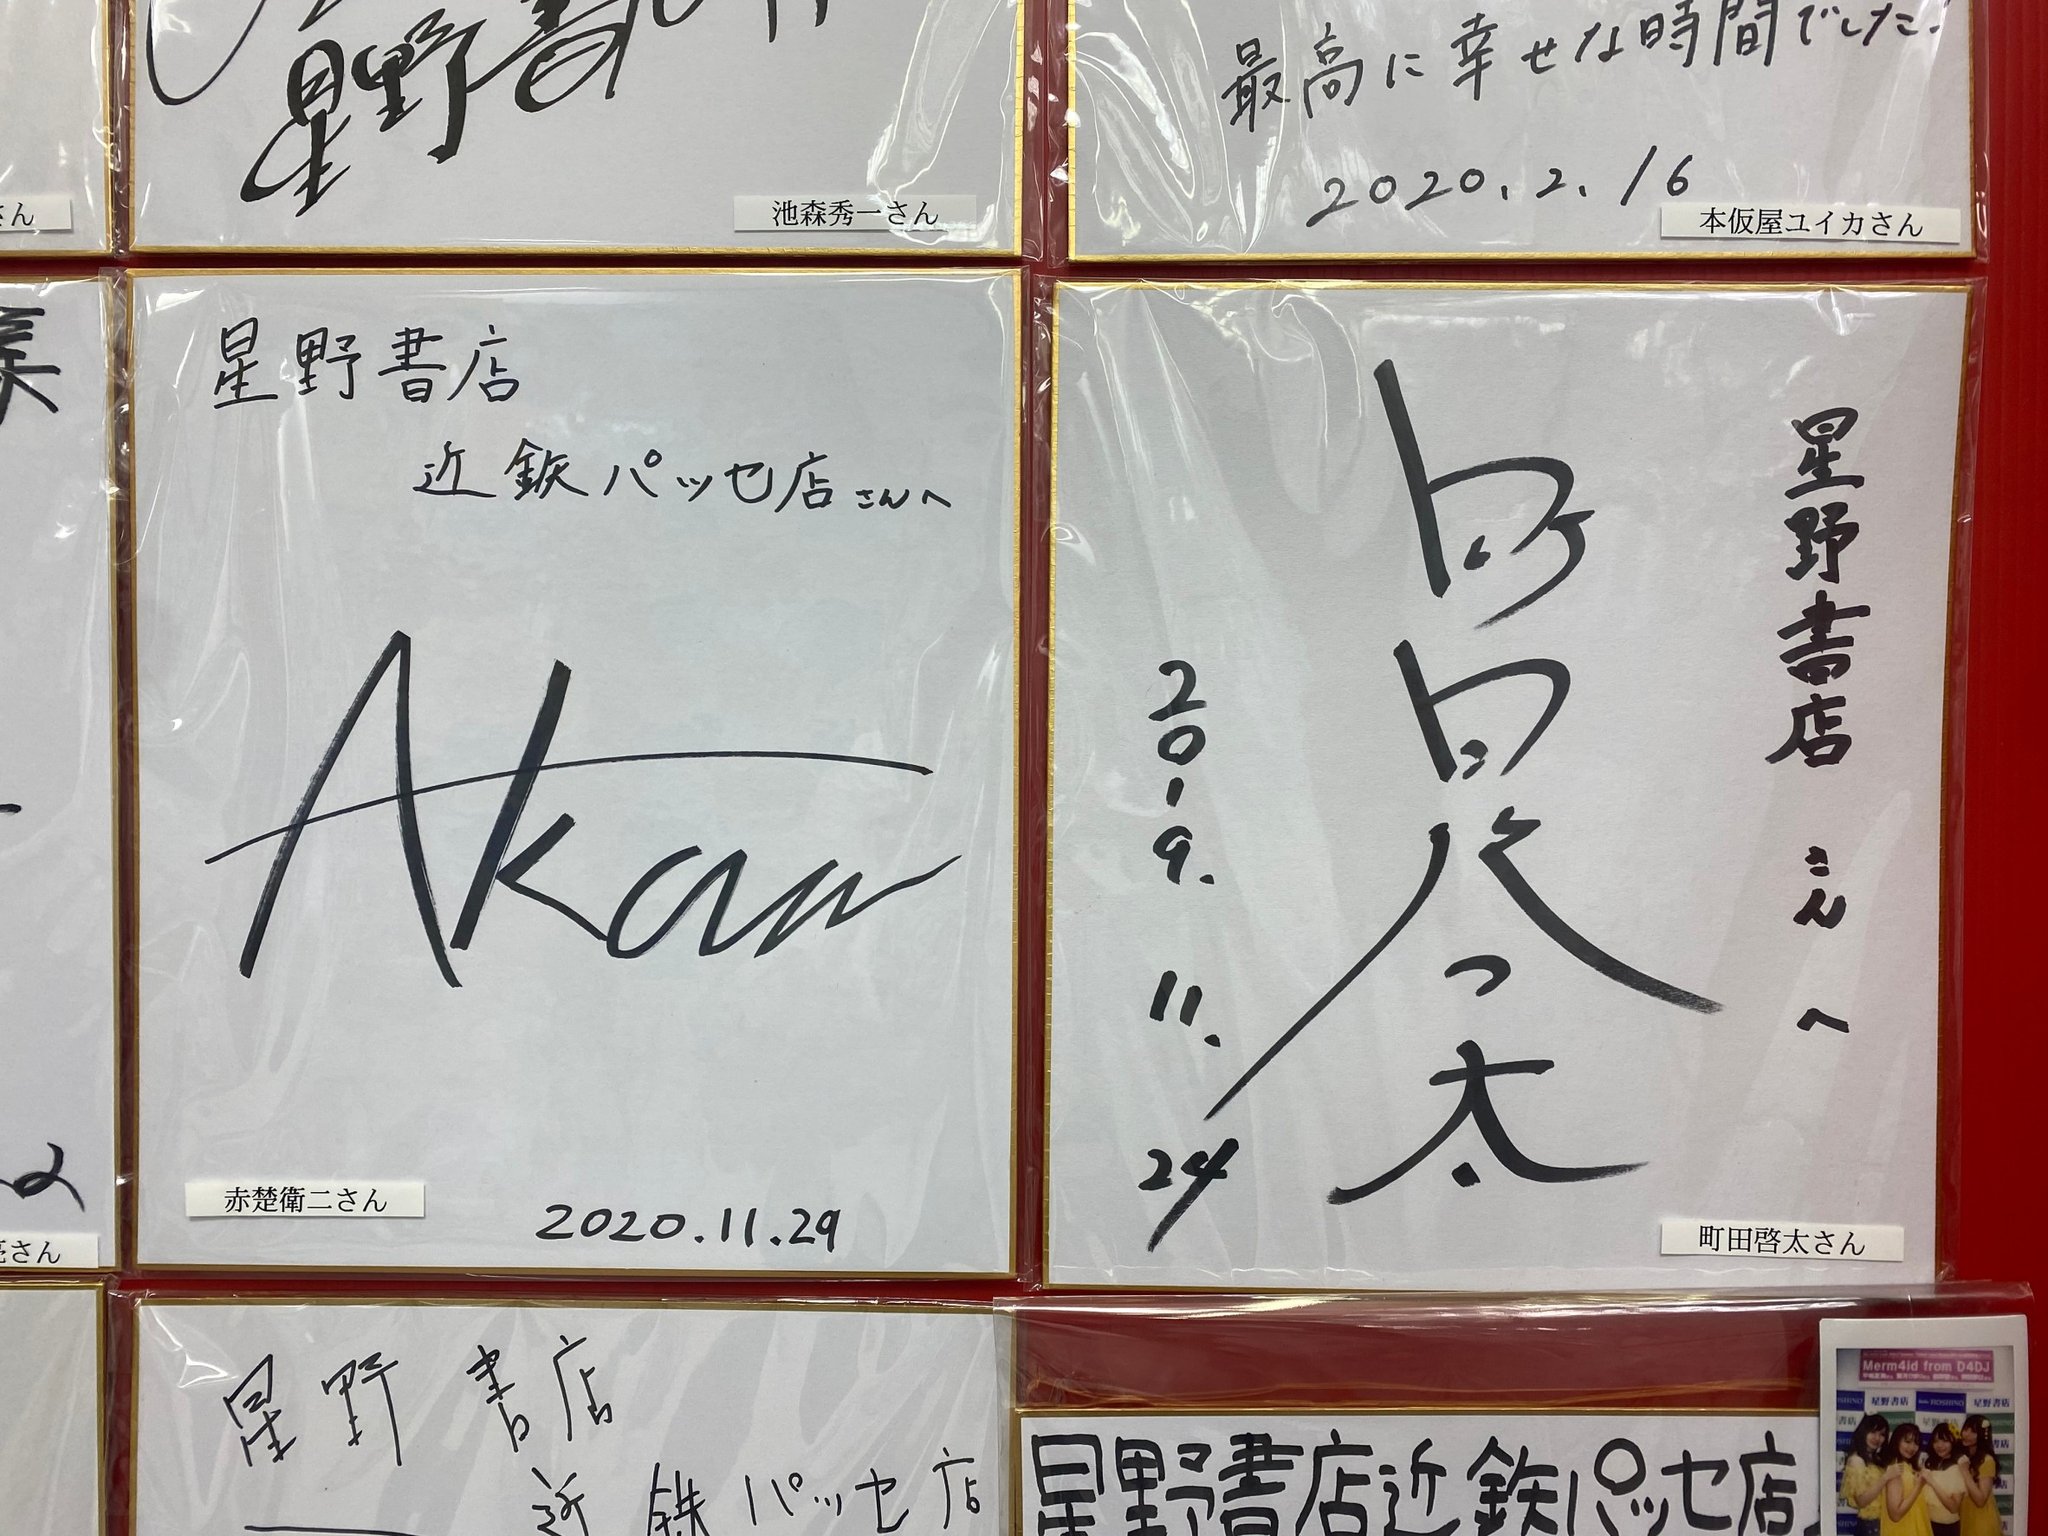 星野書
池森秀一さん
最高に幸せな時間でした!
2020.2.16
本仮屋ユイカさん
さん
様
星野書店
近鉄パッセ店さんへ
Akaso
赤楚衛二さん
2020.11.29
星野書店さんへ
町田啓太
2019.11.24
町田啓太さん
さん
星野書店
近鉄パッセ店
星野書店近鉄パッセ店
Merm4id from D4DJ
星野書店
HOSHINO
星野書店